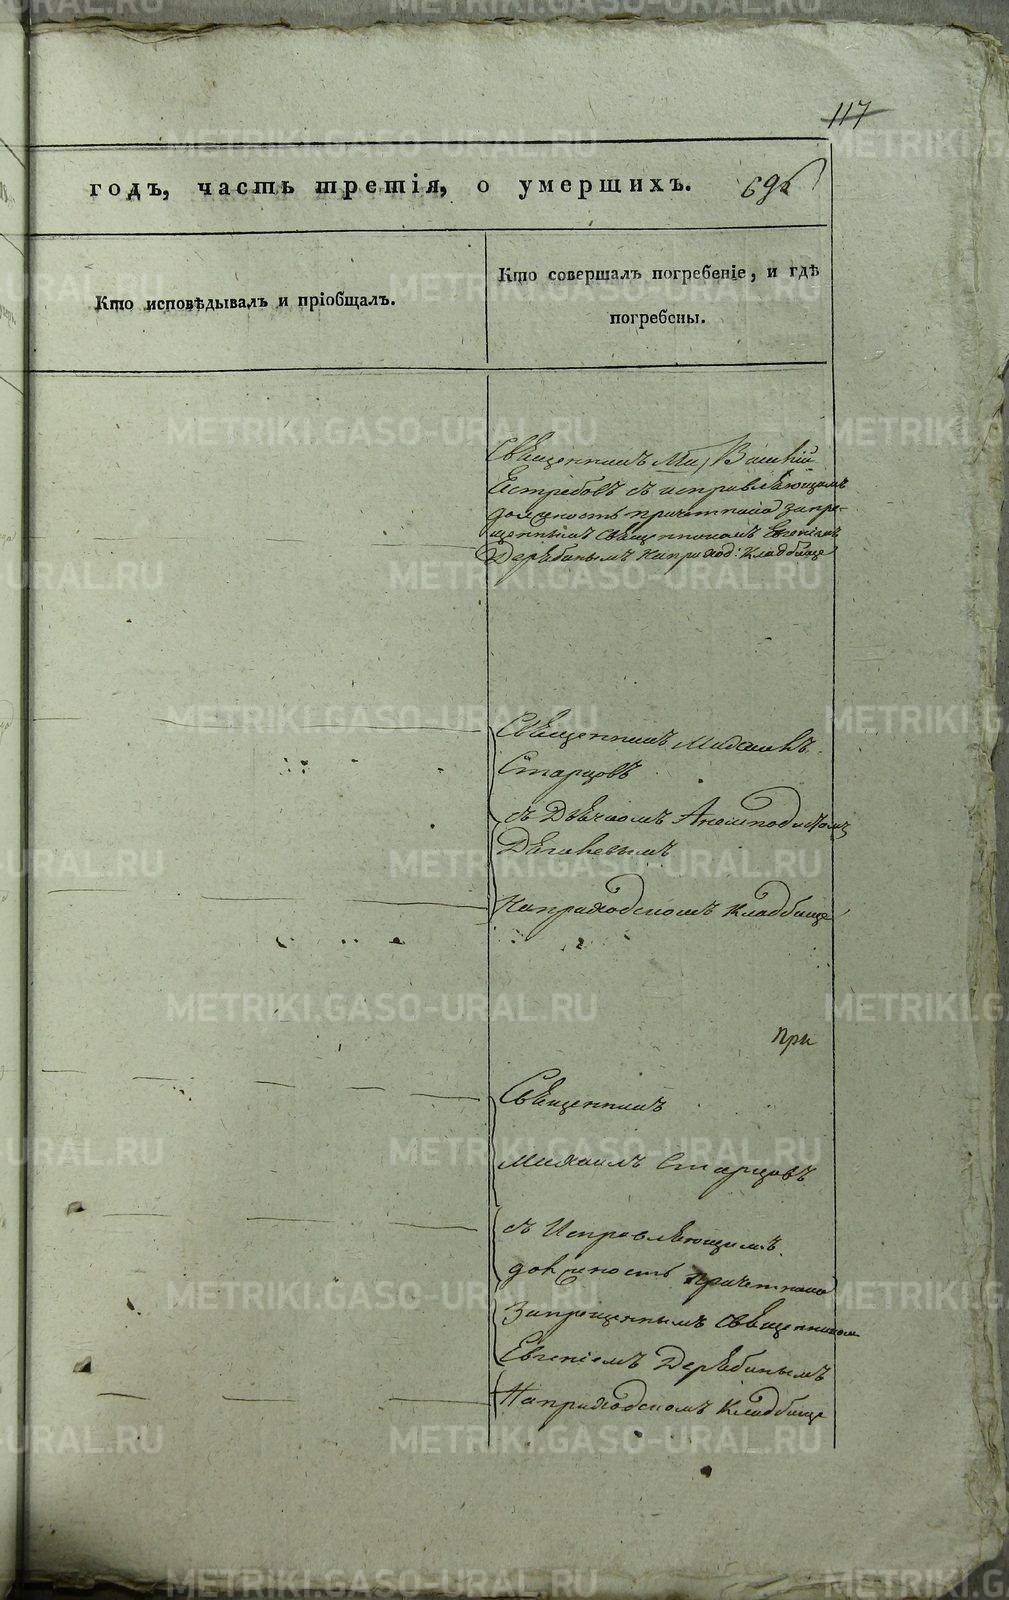 117
годъ, часть третія, о умершихъ.
Кто исповѣдывалъ и пріобщалъ.
Кто совершалъ погребеніе, и гдѣ
погребены.
Священникъ
Ястребовъ съ исправляющимъ
должность причетника запре-
щеннымъ священникомъ Евгеніемъ
Дерябинымъ на приход: кладбище
Священникъ Михаилъ
Старцовъ
съ Дьячкомъ
На приходскомъ кладбище
при
Священникъ
Михаилъ Старцовъ
съ Исправляющимъ
должность причетника
Запрещеннымъ священником
Евгеніемъ Дерябинымъ
На приходскомъ кладбище
METRIKI.GASO-URAL.RU